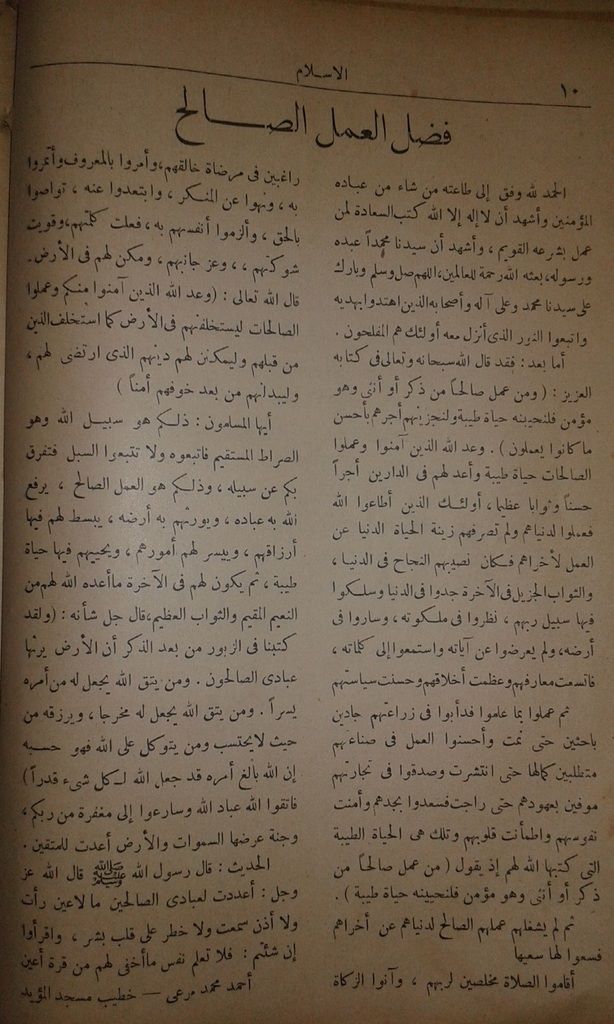 الاسلام
١٠
فضل العمل الصالح
الحمد لله وفق إلى طاعته من شاء من عباده
المؤمنين وأشهد أن لا إله إلا الله كتب السعادة لمن
عمل بشرعه القويم ، وأشهد أن سيدنا محمداً عبده
ورسوله، بعثه الله رحمة للعالمين، اللهم صل وسلم وبارك
على سيدنا محمد وعلى آله وأصحابه الذين اهتدوا بهديه
واتبعوا النور الذى أنزل معه أولئك هم المفلحون .
أما بعد : فقد قال الله سبحانه وتعالى فى كتابه
العزيز : ( ومن عمل صالحاً من ذكر أو أنثى وهو
مؤمن فلنحيينه حياة طيبة ولنجزينهم أجرهم بأحسن
ما كانوا يعملون ) . وعد الله الذين آمنوا وعملوا
الصالحات حياة طيبة وأعد لهم فى الدارين أجراً
حسناً وثوابا عظيما ، أولئك الذين أطاعوا الله
فعملوا لدنياهم ولم تصرفهم زينة الحياة الدنيا عن
العمل لأخراهم فكان نصيبهم النجاح فى الدنيا ،
والثواب الجزيل فى الآخرة جدوا فى الدنيا وسلكوا
فيها سبيل ربهم ، نظروا فى ملكوته ، وساروا فى
أرضه، ولم يعرضوا عن آياته واستمعوا إلى كلماته ،
فاتسعت معارفهم وعظمت أخلاقهم وحسنت سياستهم
ثم عملوا بما علموا فدأبوا فى زراعتهم جادين
باحثين حتى نمت وأحسنوا العمل فى صناعتهم
متطلبين كمالها حتى انتشرت وصدقوا فى تجارتهم
موفين بعهودهم حتى راجت فسعدوا بجدهم وأمنت
نفوسهم واطمأنت قلوبهم وتلك هى الحياة الطيبة
التى كتبها الله لهم إذ يقول ( من عمل صالحاً من
ذكر أو أنثى وهو مؤمن فلنحيينه حياة طيبة ) .
ثم لم يشغلهم عملهم الصالح لدنياهم عن أخراهم
فسعوا لها سعيها
أقاموا الصلاة مخلصين لربهم ، وآتوا الزكاة
راغبين فى مرضاة خالقهم، وأمروا بالمعروف وأتمروا
به ، ونهوا عن المنكر ، وابتعدوا عنه ، تواصوا
بالحق ، وألزموا أنفسهم به ، فعلت كلمتهم، وقويت
شوكتهم ، ، وعز جانبهم ، ومكن لهم فى الأرض.
قال الله تعالى : (وعد الله الذين آمنوا منكم وعملوا
الصالحات ليستخلفنهم فى الأرض كما استخلف الذين
من قبلهم وليمكنن لهم دينهم الذى ارتضى لهم ،
وليبدلنهم من بعد خوفهم أمناً )
أيها المسلمون : ذلكم هو سبيل الله وهو
الصراط المستقيم فاتبعوه ولا تتبعوا السبل فتفرق
بكم عن سبيله ، وذلكم هو العمل الصالح ، يرفع
الله به عباده ، ويورثهم به أرضه ، يبسط لهم فيها
أرزاقهم ، وييسر لهم أمورهم ، ويحييهم فيها حياة
طيبة ، ثم يكون لهم فى الآخرة ما أعده الله لهم من
النعيم المقيم والثواب العظيم، قال جل شأنه : (ولقد
كتبنا فى الزبور من بعد الذكر أن الأرض يرثها
عبادى الصالحون . ومن يتق الله يجعل له من أمره
يسراً . ومن يتق الله يجعل له مخرجا ، ويرزقه من
حيث لا يحتسب ومن يتوكل على الله فهو حسبه
إن الله بالغ أمره قد جعل الله لكل شىء قدراً )
فاتقوا الله عباد الله وسارعوا إلى مغفرة من ربكم،
وجنة عرضها السموات والأرض أعدت للمتقين .
الحديث : قال رسول الله ﷺ قال الله عز
وجل : أعددت لعبادى الصالحين ما لا عين رأت
ولا أذن سمعت ولا خطر على قلب بشر ، واقرأوا
إن شئتم : فلا تعلم نفس ما أخفى لهم من قرة أعين
أحمد محمد مرعى — خطيب مسجد المؤيد